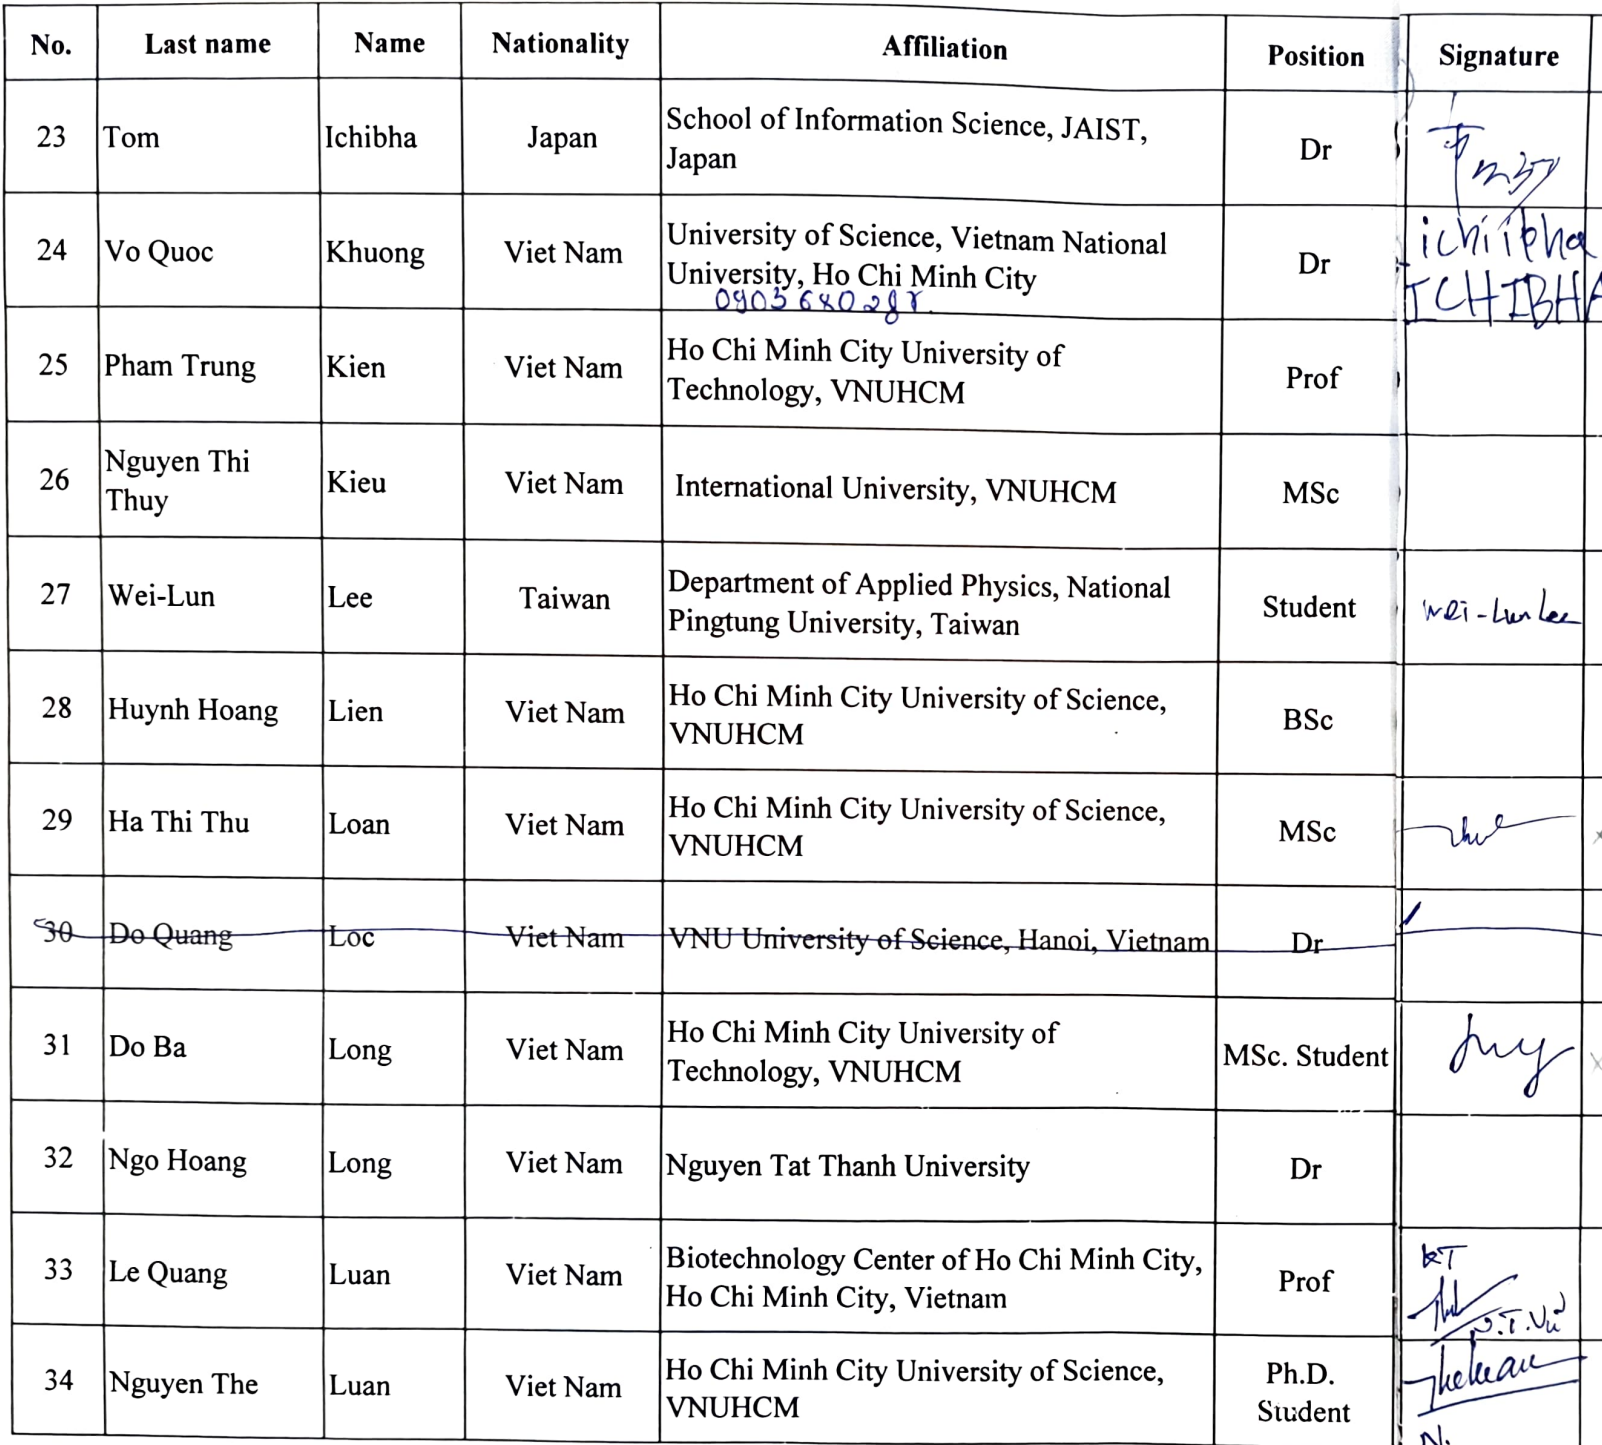 No. Last name Name Nationality Affiliation Position Signature
23 Tom Ichibha Japan School of Information Science, JAIST, Dr
Japan
24 Vo Quoc Khuong Viet Nam University of Science, Vietnam National Dr ichiibha
University, Ho Chi Minh City ICHIBHA
25 Pham Trung Kien Viet Nam Ho Chi Minh City University of Prof
Technology, VNUHCM
26 Nguyen Thi Kieu Viet Nam International University, VNUHCM MSc
Thuy
27 Wei-Lun Lee Taiwan Department of Applied Physics, National Student Wei-Lun Lee
Pingtung University, Taiwan
28 Huynh Hoang Lien Viet Nam Ho Chi Minh City University of Science, BSc
VNUHCM
29 Ha Thi Thu Loan Viet Nam Ho Chi Minh City University of Science, MSc
VNUHCM
30 Do Quang Loc Viet Nam VNU University of Science, Hanoi, Vietnam Dr
31 Do Ba Long Viet Nam Ho Chi Minh City University of MSc. Student
Technology, VNUHCM
32 Ngo Hoang Long Viet Nam Nguyen Tat Thanh University Dr
33 Le Quang Luan Viet Nam Biotechnology Center of Ho Chi Minh City, Prof KT
Ho Chi Minh City, Vietnam
34 Nguyen The Luan Viet Nam Ho Chi Minh City University of Science, Ph.D.
VNUHCM Student